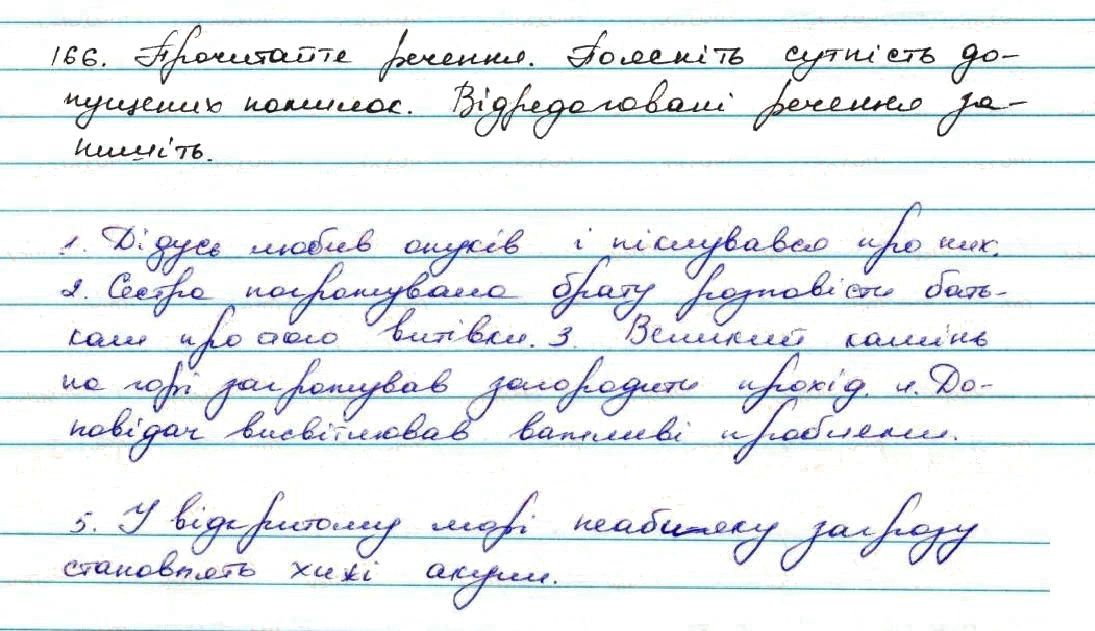 166. Прочитайте речення. Поясніть сутність до-
пущених помилок. Відредаговані речення за-
пишіть.
1. Дідусь любив онуків і піклувався про них.
2. Сестра погрожувала брату розповісти бать-
кам про його витівки. 3. Великий камінь
на горі загрожував загородити прохід. 4. До-
повідач висвітлював важливі проблеми.
5. У відкритому морі неабияку загрозу
становлять хижі акули.